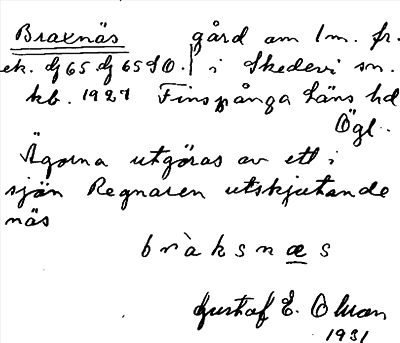 Braxnäs gård om 1 m. fr.
ek. dj 65 dj 65 SO. i Skedevi sn.
kb. 1927 Finspånga Läns hd
Ögl.
Ägorna utgöras av ett i
sjön Regnaren utskjutande
näs
bràksnæs
Gustaf E. Olman
1931